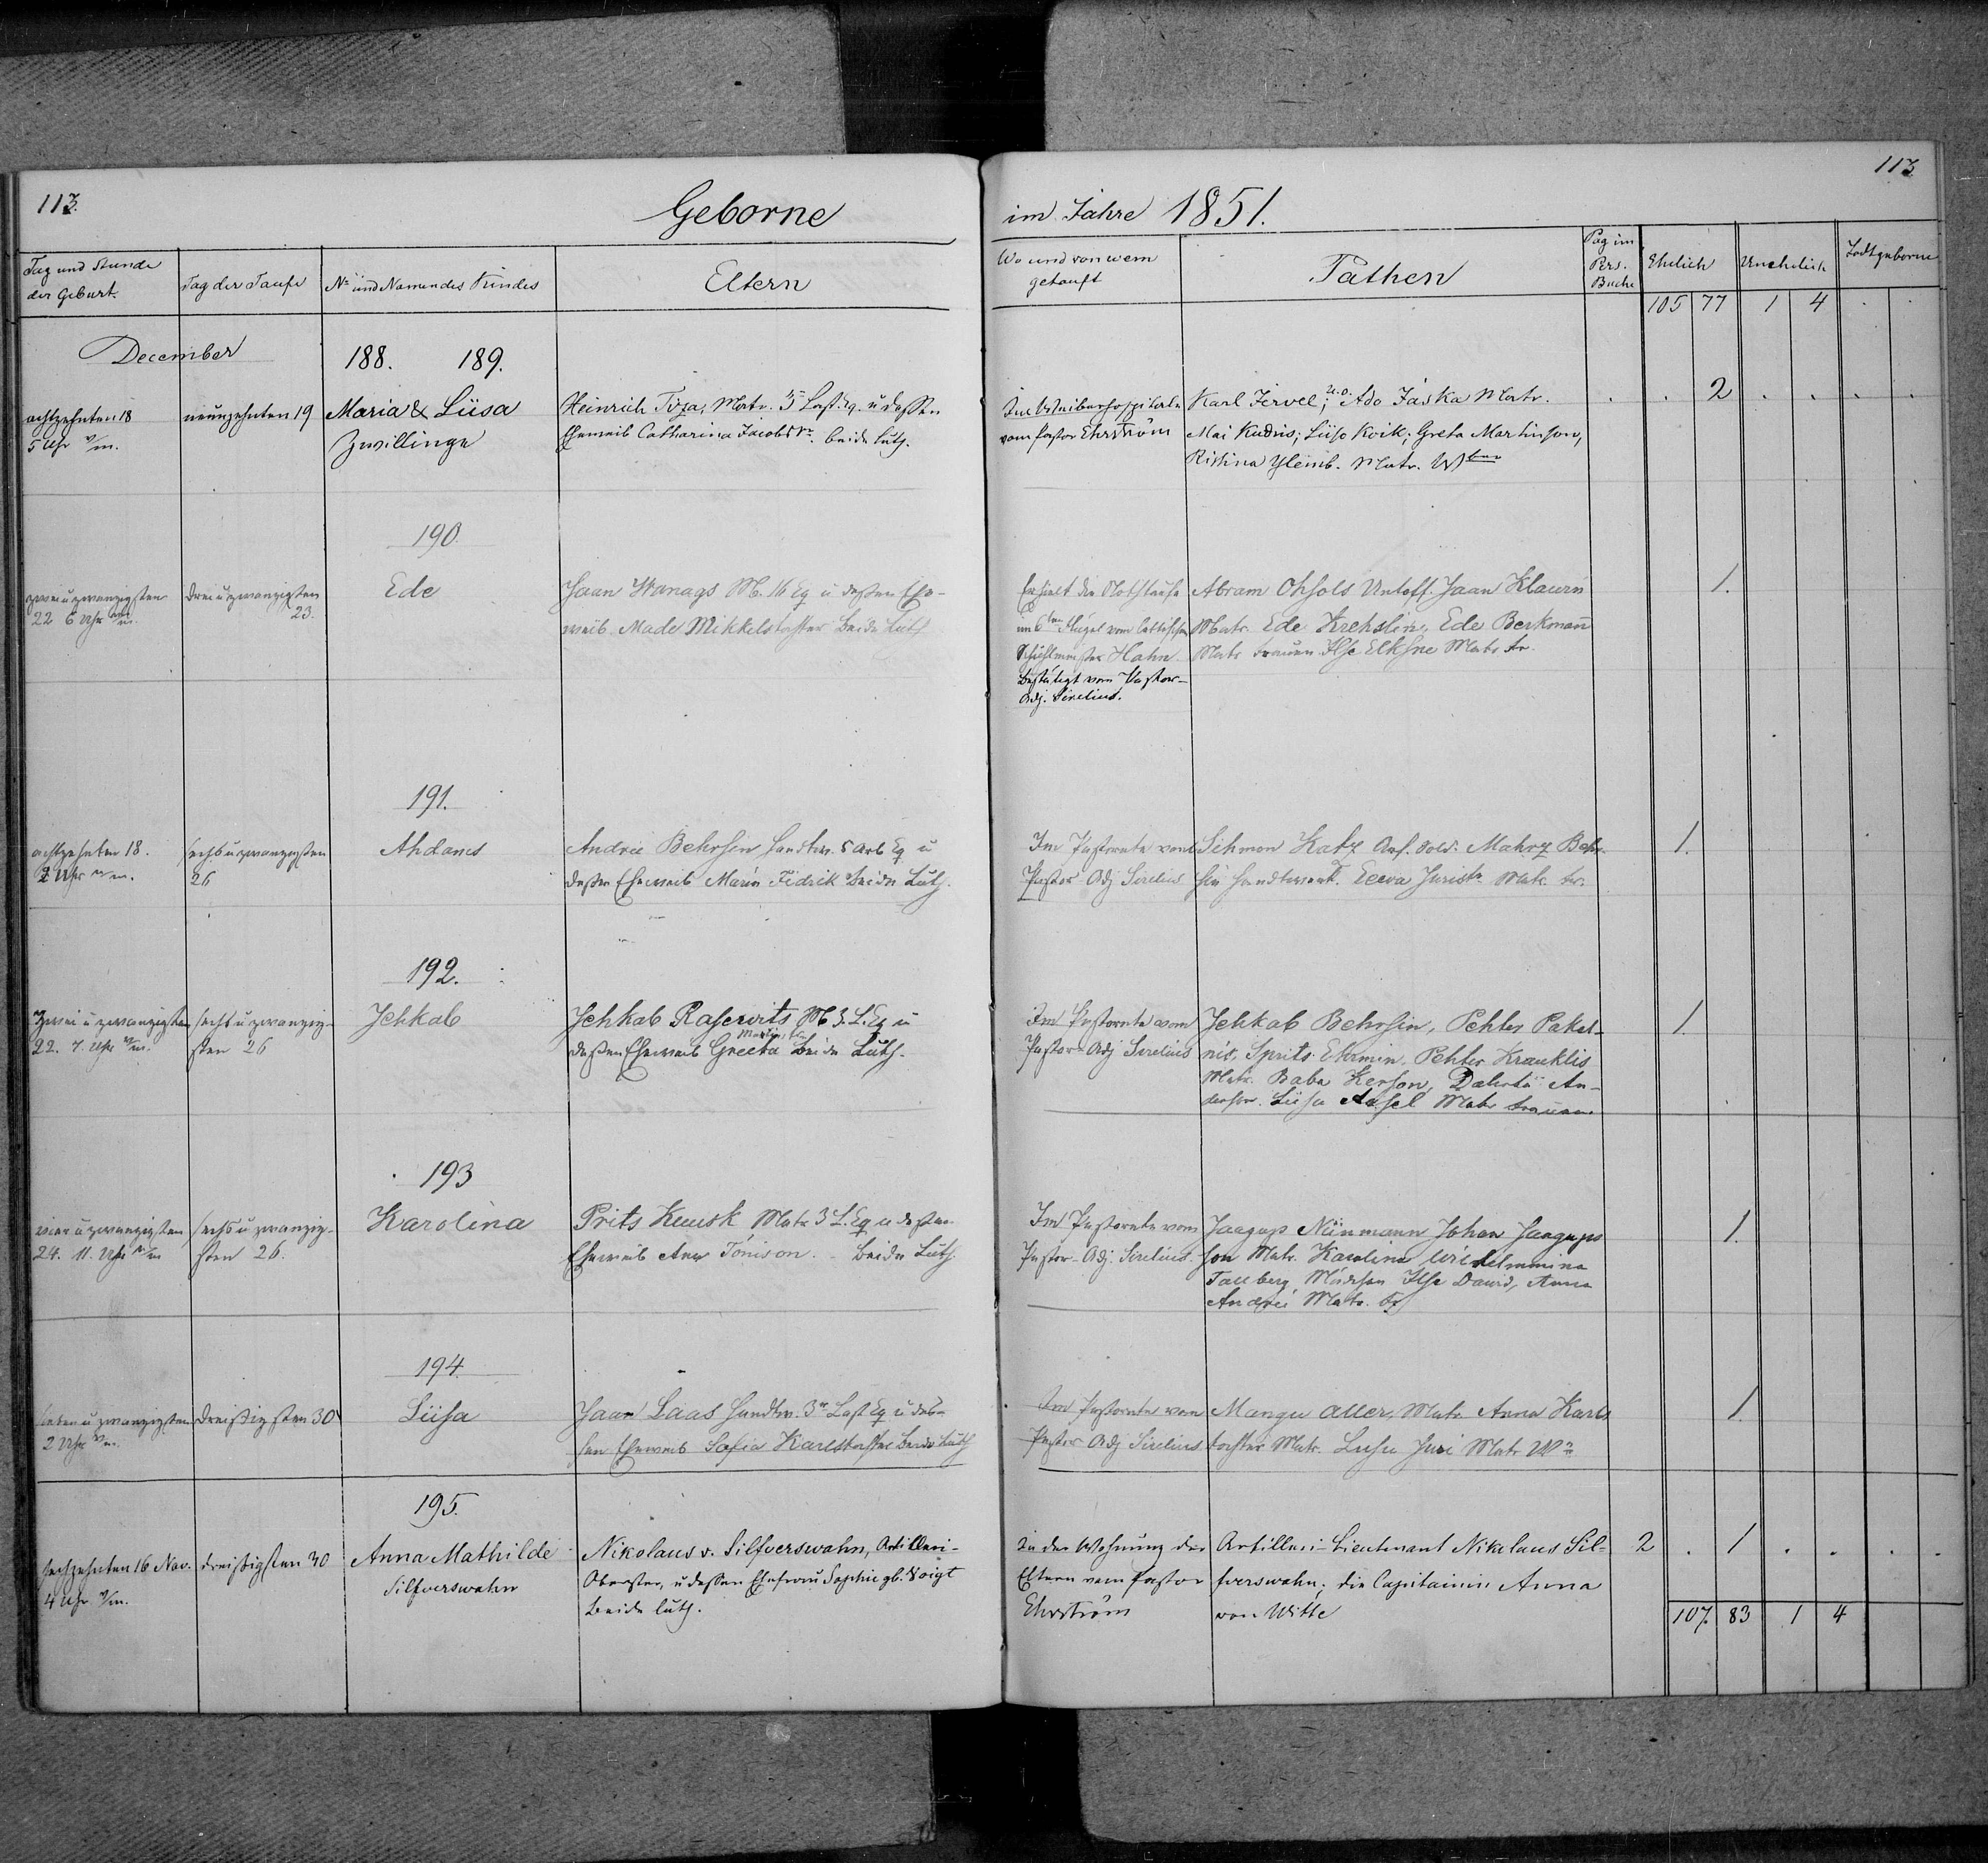 113.
Geborne
im Jahre 1851.
113
Tag und Stunde
der Geburt.
Tag der Taufe
No und Namen des Kindes
Eltern
Wo und von wem
getauft
Pathen
Pag im
Prs.
Buche
Ehelich
Unehelich
Todtgeborne
105 77 1 4 . .
December
188. 189.
achtzehnten 18
5 Uhr
neunzehnten 19
Maria & Liisa
Zwillinge
Heinrich Matr. 5 Last. Eq. u deßen
Eheweib Catharina Jacobstr. beide luth.
Im Weiberhospitale
vom Pastor Ehrström
Karl Jervel; Ado Jaska Matr.
Mai Kudris; Liiso Koik; Greta Martinson,
Ristina Matr.
. . 2 . . . .
190
zweiu zwanzigsten
22 6 Uhr
dreiu zwanzigsten
23.
Ede
Jaan Wanags M. 16 Eq u deßen Ehe-
weib Made Mikkelstochter beide Luth
Erhielt die Nothtaufe
im 6ten Flügel vom lettischen
Schulmeister Hahn.
Bestätigt vom Pastor-
Adj. Sirelius.
Abram Ohsols Untoff. Jaan Klawin
Matr. Ede Krehslin, Ede Berkmann
Matr Frauen Ilse Elksne Matr. fr.
1.
191.
achtzehnten 18.
2 Uhr
sechsu zwanzigsten
26
Ahdams
Andree Behrsin Handtw. 5 Arb Eq u
deßen Eheweib Marin Fidrik beide Luth.
Im Pastorate vom
Pastor Adj Sirelius
Sihmon Katz Mahrz Behr-
sin Handtwerk. Eewa Matr. fr.
1.
192.
Zwei u zwanzigsten
22. 7. Uhr
sechs u zwanzig-
sten 26
Jehkab
Jehkab Rasewits M 3. L. Eq u
deßen Eheweib Greeta beide Luth.
Im Pastorate vom
Pastor-Adj Sirelius
Jehkab Behrsin, Pehter Pakal-
nis, Sprits Pehter Krauklis
Matr. Baba Kerson, Dahrta An-
derson. Liisa Matr frauen.
1.
193
vier u zwanzigsten
24. 11. Uhr
sechs u zwanzig-
sten 26.
Karolina
Prits Keusk Matr 3 L. Eq u deßen
Eheweib Ann Tönison. Beide Luth
Im Pastorate vom
Pastor-Adj. Sirelius.
Jaagup Niinmann Johan Jaagup-
son Matr. Karolina
Tallberg, Mädchen Ilse David, Anna
Andrei Matr. Fr
1.
194.
sieben u zwanzigsten
2 Uhr
dreißigsten 30
Liisa
Jaan Laas Handtw. 3r Last Eq u des-
sen Eheweib Sofia Karlstochter beide Luth
Im Pastorate vom
Pastor Adj Sirelius
Mangu Aller, Matr. Anna Karls
tochter Matr. Liisa Juri Matr
1
195.
sechzehnten 16 Nov.
4 Uhr
dreißigsten 30
Anna Mathilde
Silfverswahn
Nikolaus v. Silfverswahn, Artilleri-
Oberster, u deßen Ehefrau Sophie gb. Voigt
Beide luth.
In der Wohnung der
Eltern vom Pastor
Ehrström
Artilleri-Lieutenant Nikolaus Sil-
fverswahn; die Capitainin Anna
von Witte
2 . 1 . . . .
107. 83 1 4